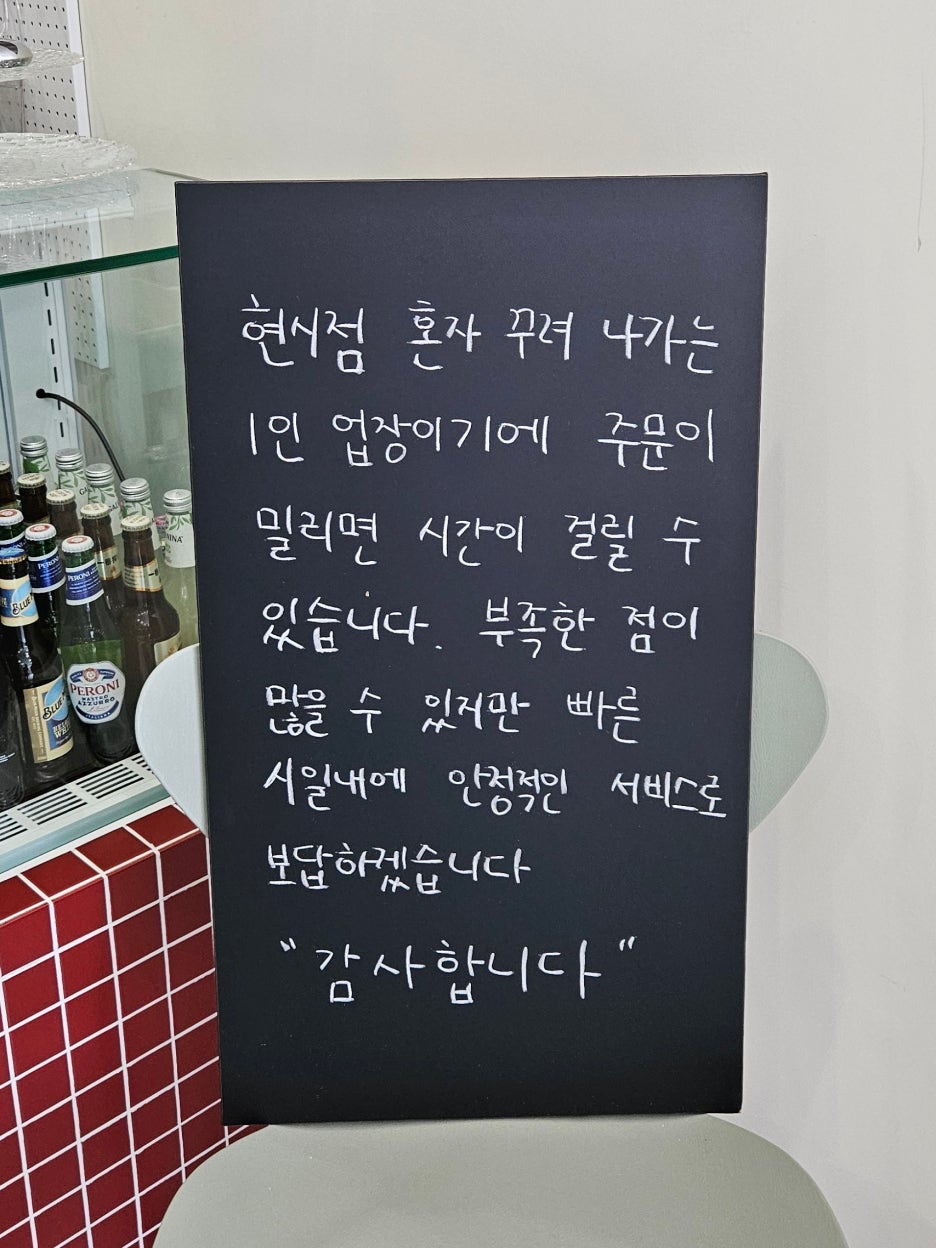 현시점 혼자 꾸려 나가는
1인 업장이기에 주문이
밀리면 시간이 걸릴 수
있습니다. 부족한 점이
많을 수 있지만 빠른
시일내에 안정적인 서비스로
보답하겠습니다
"감사합니다"
PERONI
NASTRO
AZZURRO
BLUE
PERONI
PERONI
BLUE